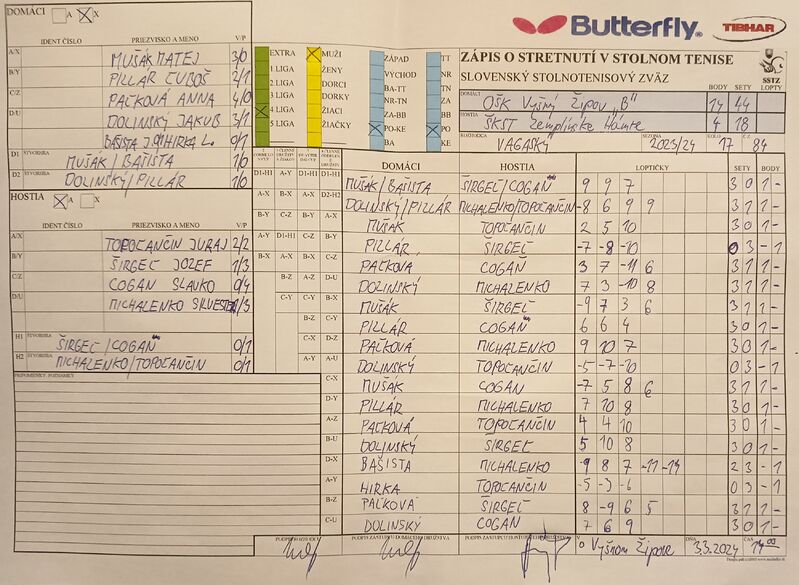 DOMÁCI A X
IDENT ČÍSLO PRIEZVISKO A MENO V/P
A/X MUŠÁK MATEJ 3/0
B/Y PILLÁR ĽUBOŠ 2/1
C/Z PAĽKOVÁ ANNA 4/0
D/U DOLINSKÝ JAKUB 3/1
BAŠISTA J./HIRKA L. 0/1
D1 ŠTVORHRA MUŠÁK/BAŠISTA 1/0
D2 ŠTVORHRA DOLINSKÝ/PILLÁR 1/0
HOSTIA A X
IDENT ČÍSLO PRIEZVISKO A MENO V/P
A/X TOPOĽANČIN JURAJ 2/2
B/Y ŠIRGEĽ JOZEF 1/3
C/Z COGAŇ SLAVKO 0/4
D/U MICHALENKO SILVESTER 1/3
H1 ŠTVORHRA ŠIRGEĽ/COGAŇ 0/1
H2 ŠTVORHRA MICHALENKO/TOPOĽANČIN 0/1
PRIPOMIENKY, POZNÁMKY
EXTRA
1 LIGA
2 LIGA
3 LIGA
4 LIGA
5 LIGA
MUŽI
ŽENY
DORCI
DORKY
ŽIACI
ŽIAČKY
ZÁPAD
VÝCHOD
BA-TT
NR-TN
ZA-BB
PO-KE
BA
TT
NR
TN
ZA
BB
PO
KE
Butterfly
TIBHAR
ZÁPIS O STRETNUTÍ V STOLNOM TENISE
SLOVENSKÝ STOLNOTENISOVÝ ZVÄZ
SSTZ
BODY SETY LOPTY
DOMÁCI OŠK Vyšný Žipov "B" 14 44
HOSTIA ŠKST Zemplínske Hámre 4 18
ROZHODCA VAGASKÝ SEZÓNA 2023/24 KOLO 17 Č 84
DOMÁCI HOSTIA LOPTIČKY SETY BODY
MUŠÁK/BAŠISTA ŠIRGEĽ/COGAŇ 9 9 7 3 0 1 -
DOLINSKÝ/PILLÁR MICHALENKO/TOPOĽANČIN -8 6 9 9 3 1 1 -
MUŠÁK TOPOĽANČIN 2 5 10 3 0 1 -
PILLÁR ŠIRGEĽ -7 -8 -10 0 3 - 1
PAĽKOVÁ COGAŇ 3 7 -11 6 3 1 1 -
DOLINSKÝ MICHALENKO 7 3 -10 8 3 1 1 -
MUŠÁK ŠIRGEĽ -9 7 3 6 3 1 1 -
PILLÁR COGAŇ 6 6 4 3 0 1 -
PAĽKOVÁ MICHALENKO 9 10 7 3 0 1 -
DOLINSKÝ TOPOĽANČIN -5 -7 -10 0 3 - 1
MUŠÁK COGAŇ -7 5 8 6 3 1 1 -
PILLÁR MICHALENKO 7 10 8 3 0 1 -
PAĽKOVÁ TOPOĽANČIN 4 4 10 3 0 1 -
DOLINSKÝ ŠIRGEĽ 5 10 8 3 0 1 -
BAŠISTA MICHALENKO -9 8 7 -11 -14 2 3 - 1
HIRKA TOPOĽANČIN -5 -3 -6 0 3 - 1
PAĽKOVÁ ŠIRGEĽ 8 -9 6 5 3 1 1 -
DOLINSKÝ COGAŇ 7 6 9 3 0 1 -
PODPIS ROZHODCU PODPIS ZÁSTUPCU DOMÁCEHO DRUŽSTVA PODPIS ZÁSTUPCU HOSŤUJÚCEHO DRUŽSTVA V o Vyšnom Žipove DŇA 3.3.2024 ČAS 14 00